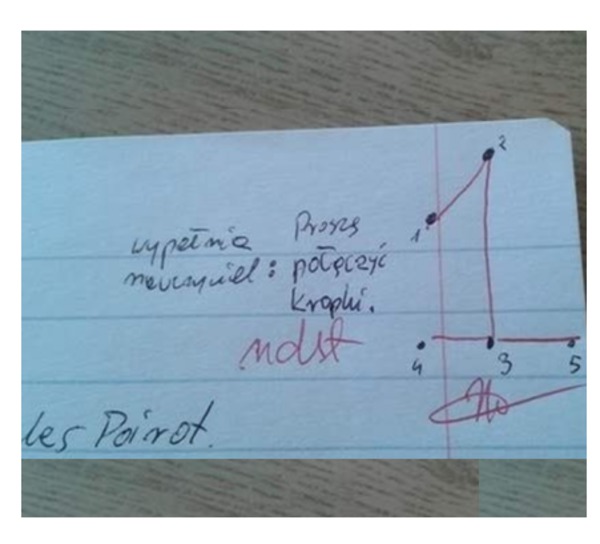 wypełnia
nauczyciel:
Proszę
połączyć
kropki.
1
2
3
4
5
ndst
les Poirot.